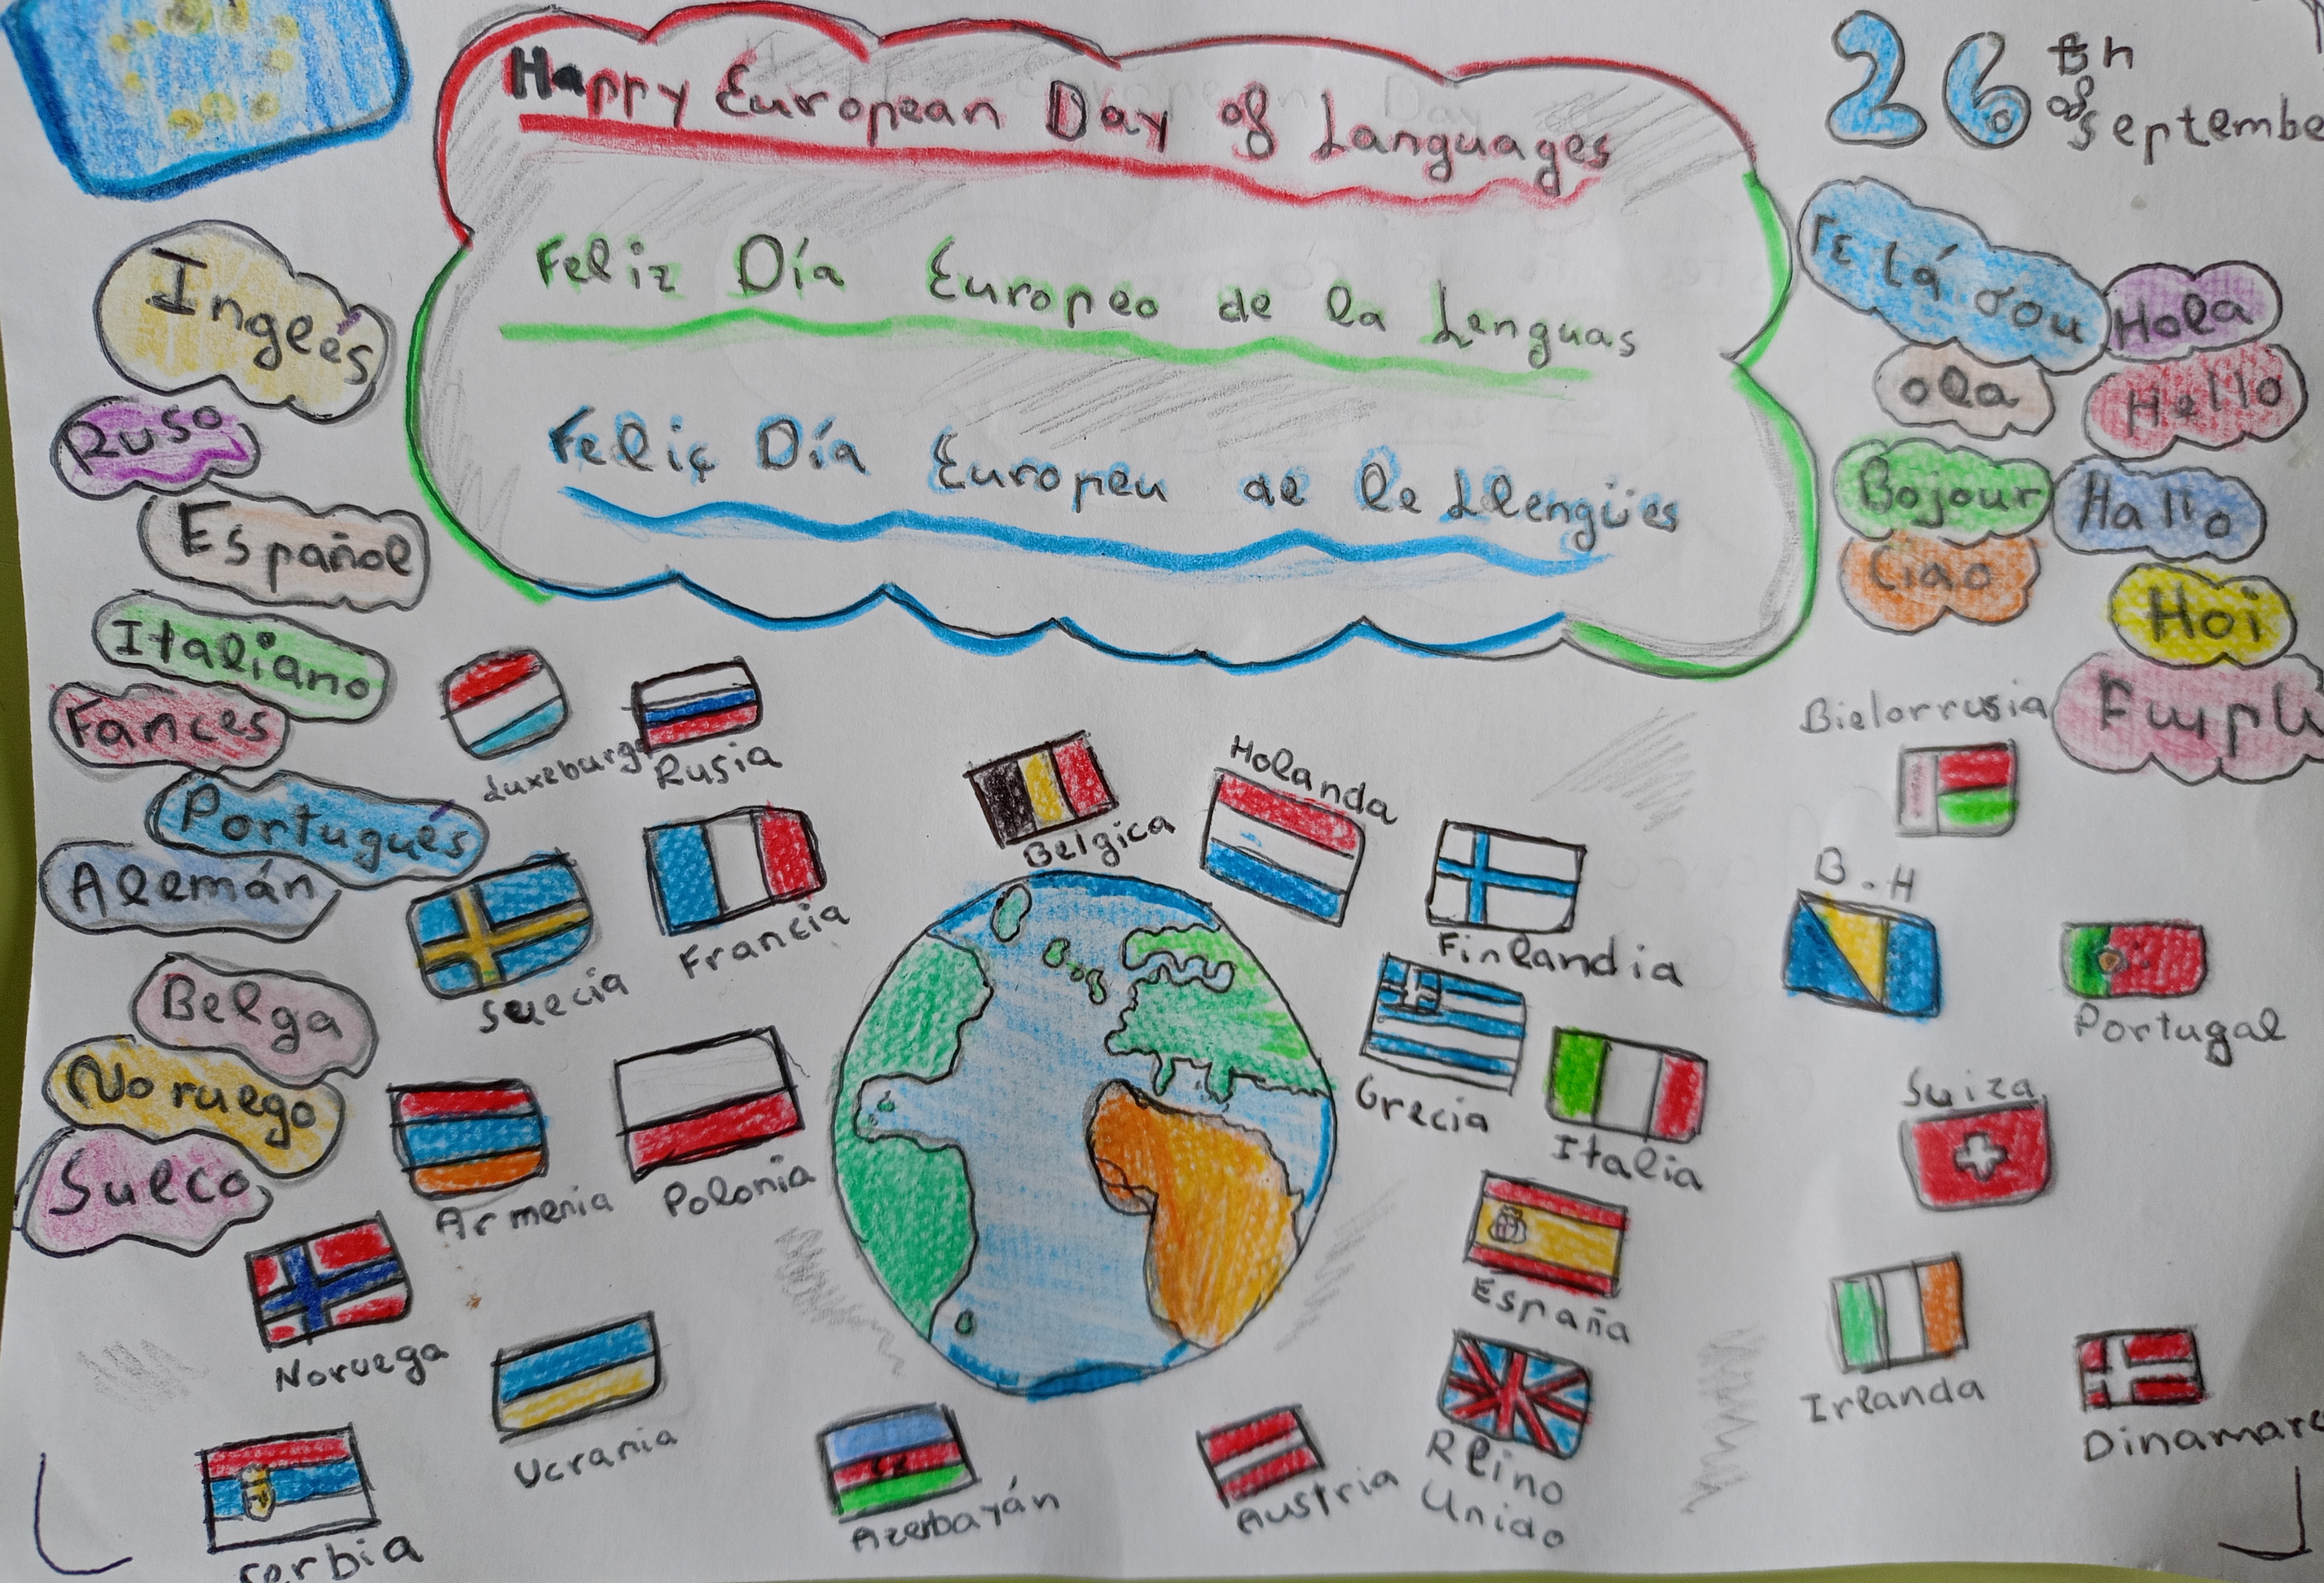 Happy European Day of Languages
26 th of September
Feliz Día Europeo de la Lenguas
Feliç Día Europeu de le Llengües
Inglés
Ruso
Español
Italiano
Fances
Portugués
Alemán
Belga
Noruego
Sueco
Γε ιá σου
Hola
ola
Hello
Bojour
Hallo
Ciao
Hoi
Luxeburgo
Rusia
Belgica
Holanda
Bielorrusia
Suecia
Francia
Finlandia
B.H
Portugal
Armenia
Polonia
Grecia
Italia
Suiza
Noruega
España
Irlanda
Ucrania
Reino
Unido
Dinamarc
Serbia
Azerbayán
Austria